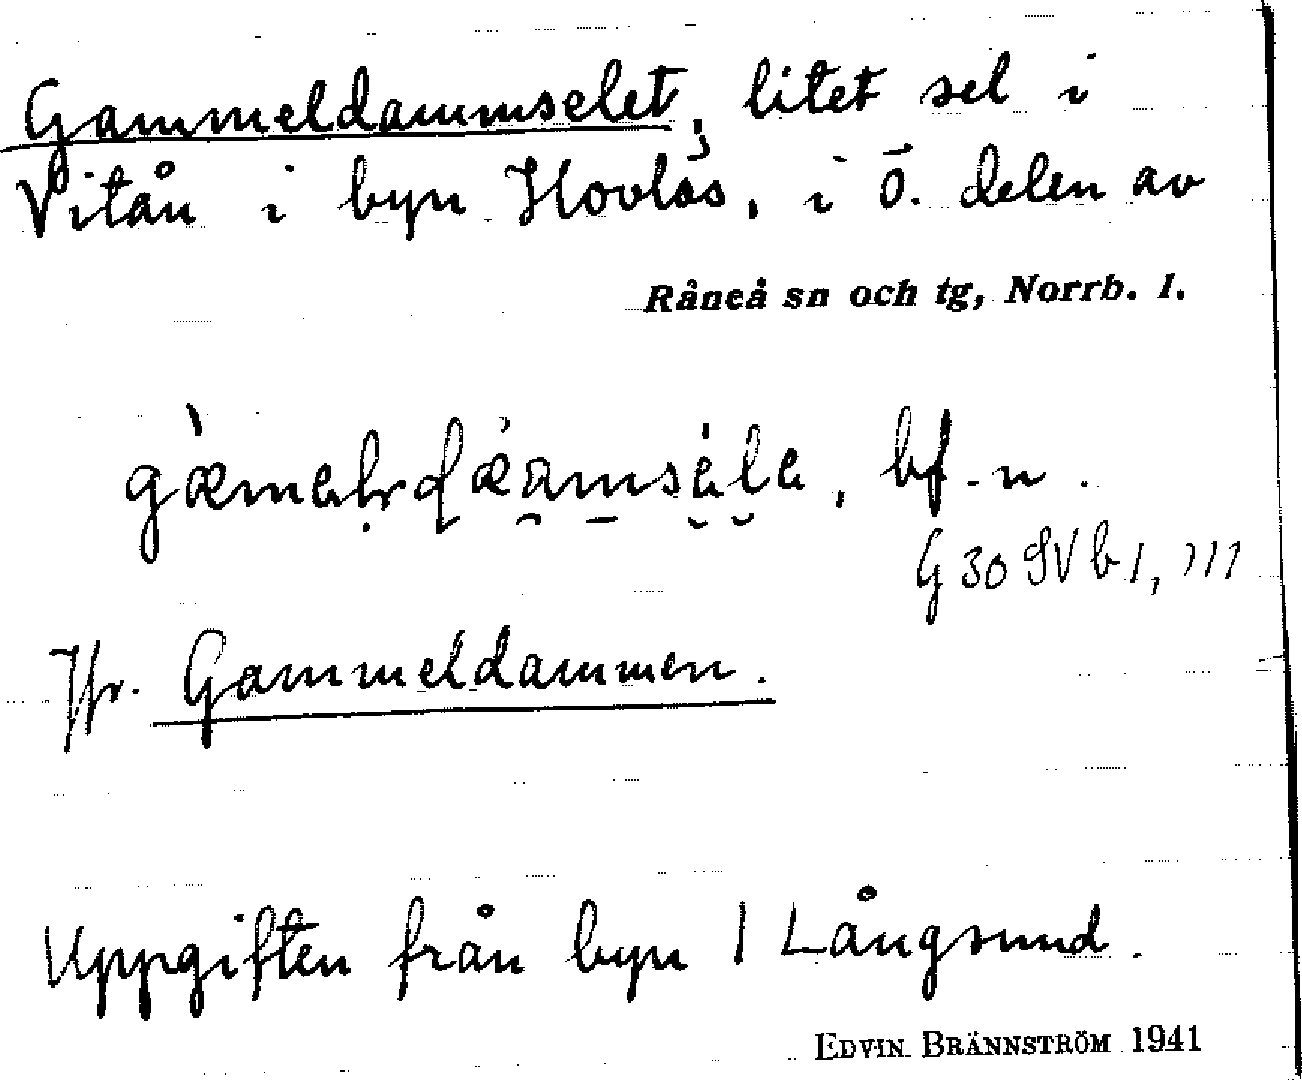 Gammeldammselet, litet sel i
Vitån i byn Hovlös, i ö. delen av
Råneå sn och tg, Norrb. l.
bf. n.
G 30 SV b 1, 111
Jfr. Gammeldammen.
Uppgiften från byn 1 Långsund.
EDVIN BRÄNNSTRÖM 1941